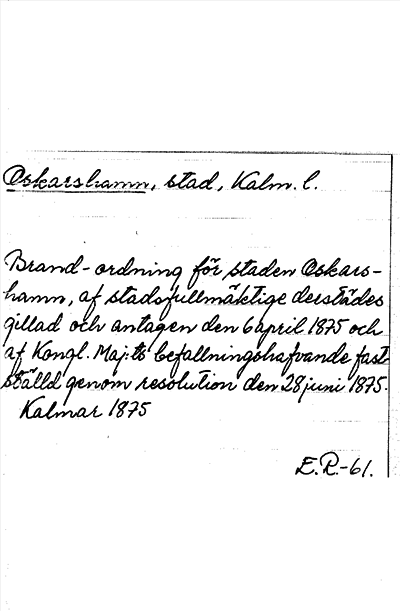 Oskarshamn, stad, Kalm. l.
Brand-ordning för staden Oskars-
hamn, af stadsfullmäktige derstädes
gillad och antagen den 6 april 1875 och
af Kongl. Maj:ts befallningshafvande fast-
ställd genom resolution den 28 juni 1875.
Kalmar 1875
E.R.-61.